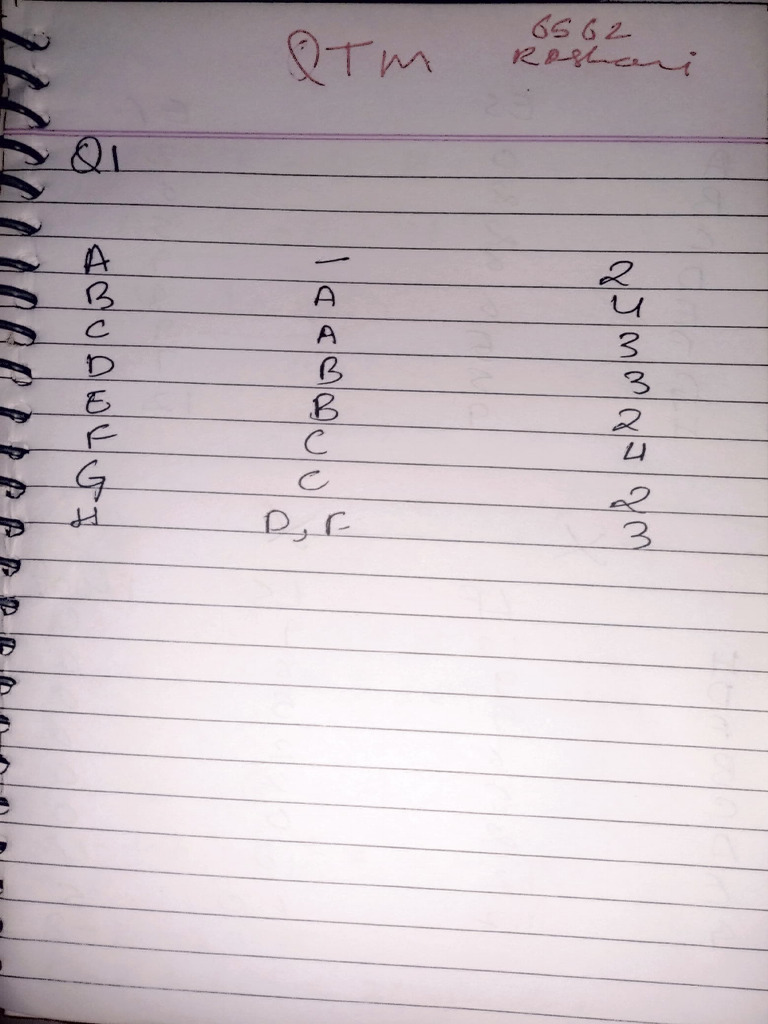 6562
QTM Roshani
Q1
A - 2
B A 4
C A 3
D B 3
E B 2
F C 4
G C 2
H D, F 3